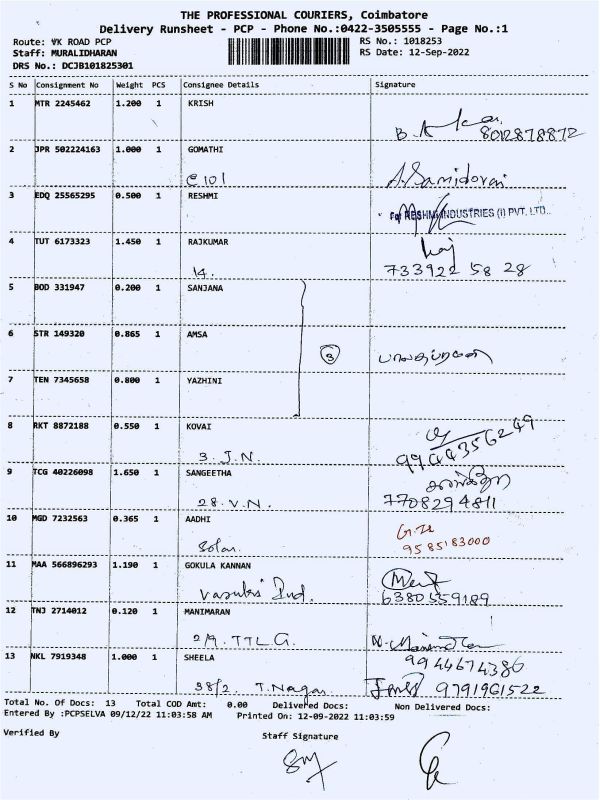 THE PROFESSIONAL COURIERS, Coimbatore
Delivery Runsheet - PCP - Phone No.:0422-3505555 - Page No.:1
Route: VK ROAD PCP
RS No.: 1018253
Staff: MURALIDHARAN
RS Date: 12-Sep-2022
DRS No.: DCJB101825301
S No Consignment No Weight PCS Consignee Details Signature
1 MTR 2245462 1.200 1 KRISH
8012878872
2 JPR 502224163 1.000 1 GOMATHI
C101 A. Samidorai
3 EDQ 25565295 0.500 1 RESHMI
For RESHMI INDUSTRIES (I) PVT. LTD..
4 TUT 6173323 1.450 1 RAJKUMAR
14. 733922 58 28
5 BOD 331947 0.200 1 SANJANA
6 STR 149320 0.865 1 AMSA
3
7 TEN 7345658 0.800 1 YAZHINI
8 RKT 8872188 0.550 1 KOVAI
3. J.N. 9944356249
9 TCG 40226098 1.650 1 SANGEETHA
28. V.N. 7708294811
10 MGD 7232563 0.365 1 AADHI
Solar. 9585183000
11 MAA 566896293 1.190 1 GOKULA KANNAN
Vasuki Ind. 6380559189
12 TNJ 2714012 0.120 1 MANIMARAN
2/9. TTL G.
9944674386
13 NKL 7919348 1.000 1 SHEELA
38/2. T. Nagar 9791961522
Total No. Of Docs: 13 Total COD Amt: 0.00 Delivered Docs: Non Delivered Docs:
Entered By :PCPSELVA 09/12/22 11:03:58 AM Printed On: 12-09-2022 11:03:59
Verified By Staff Signature